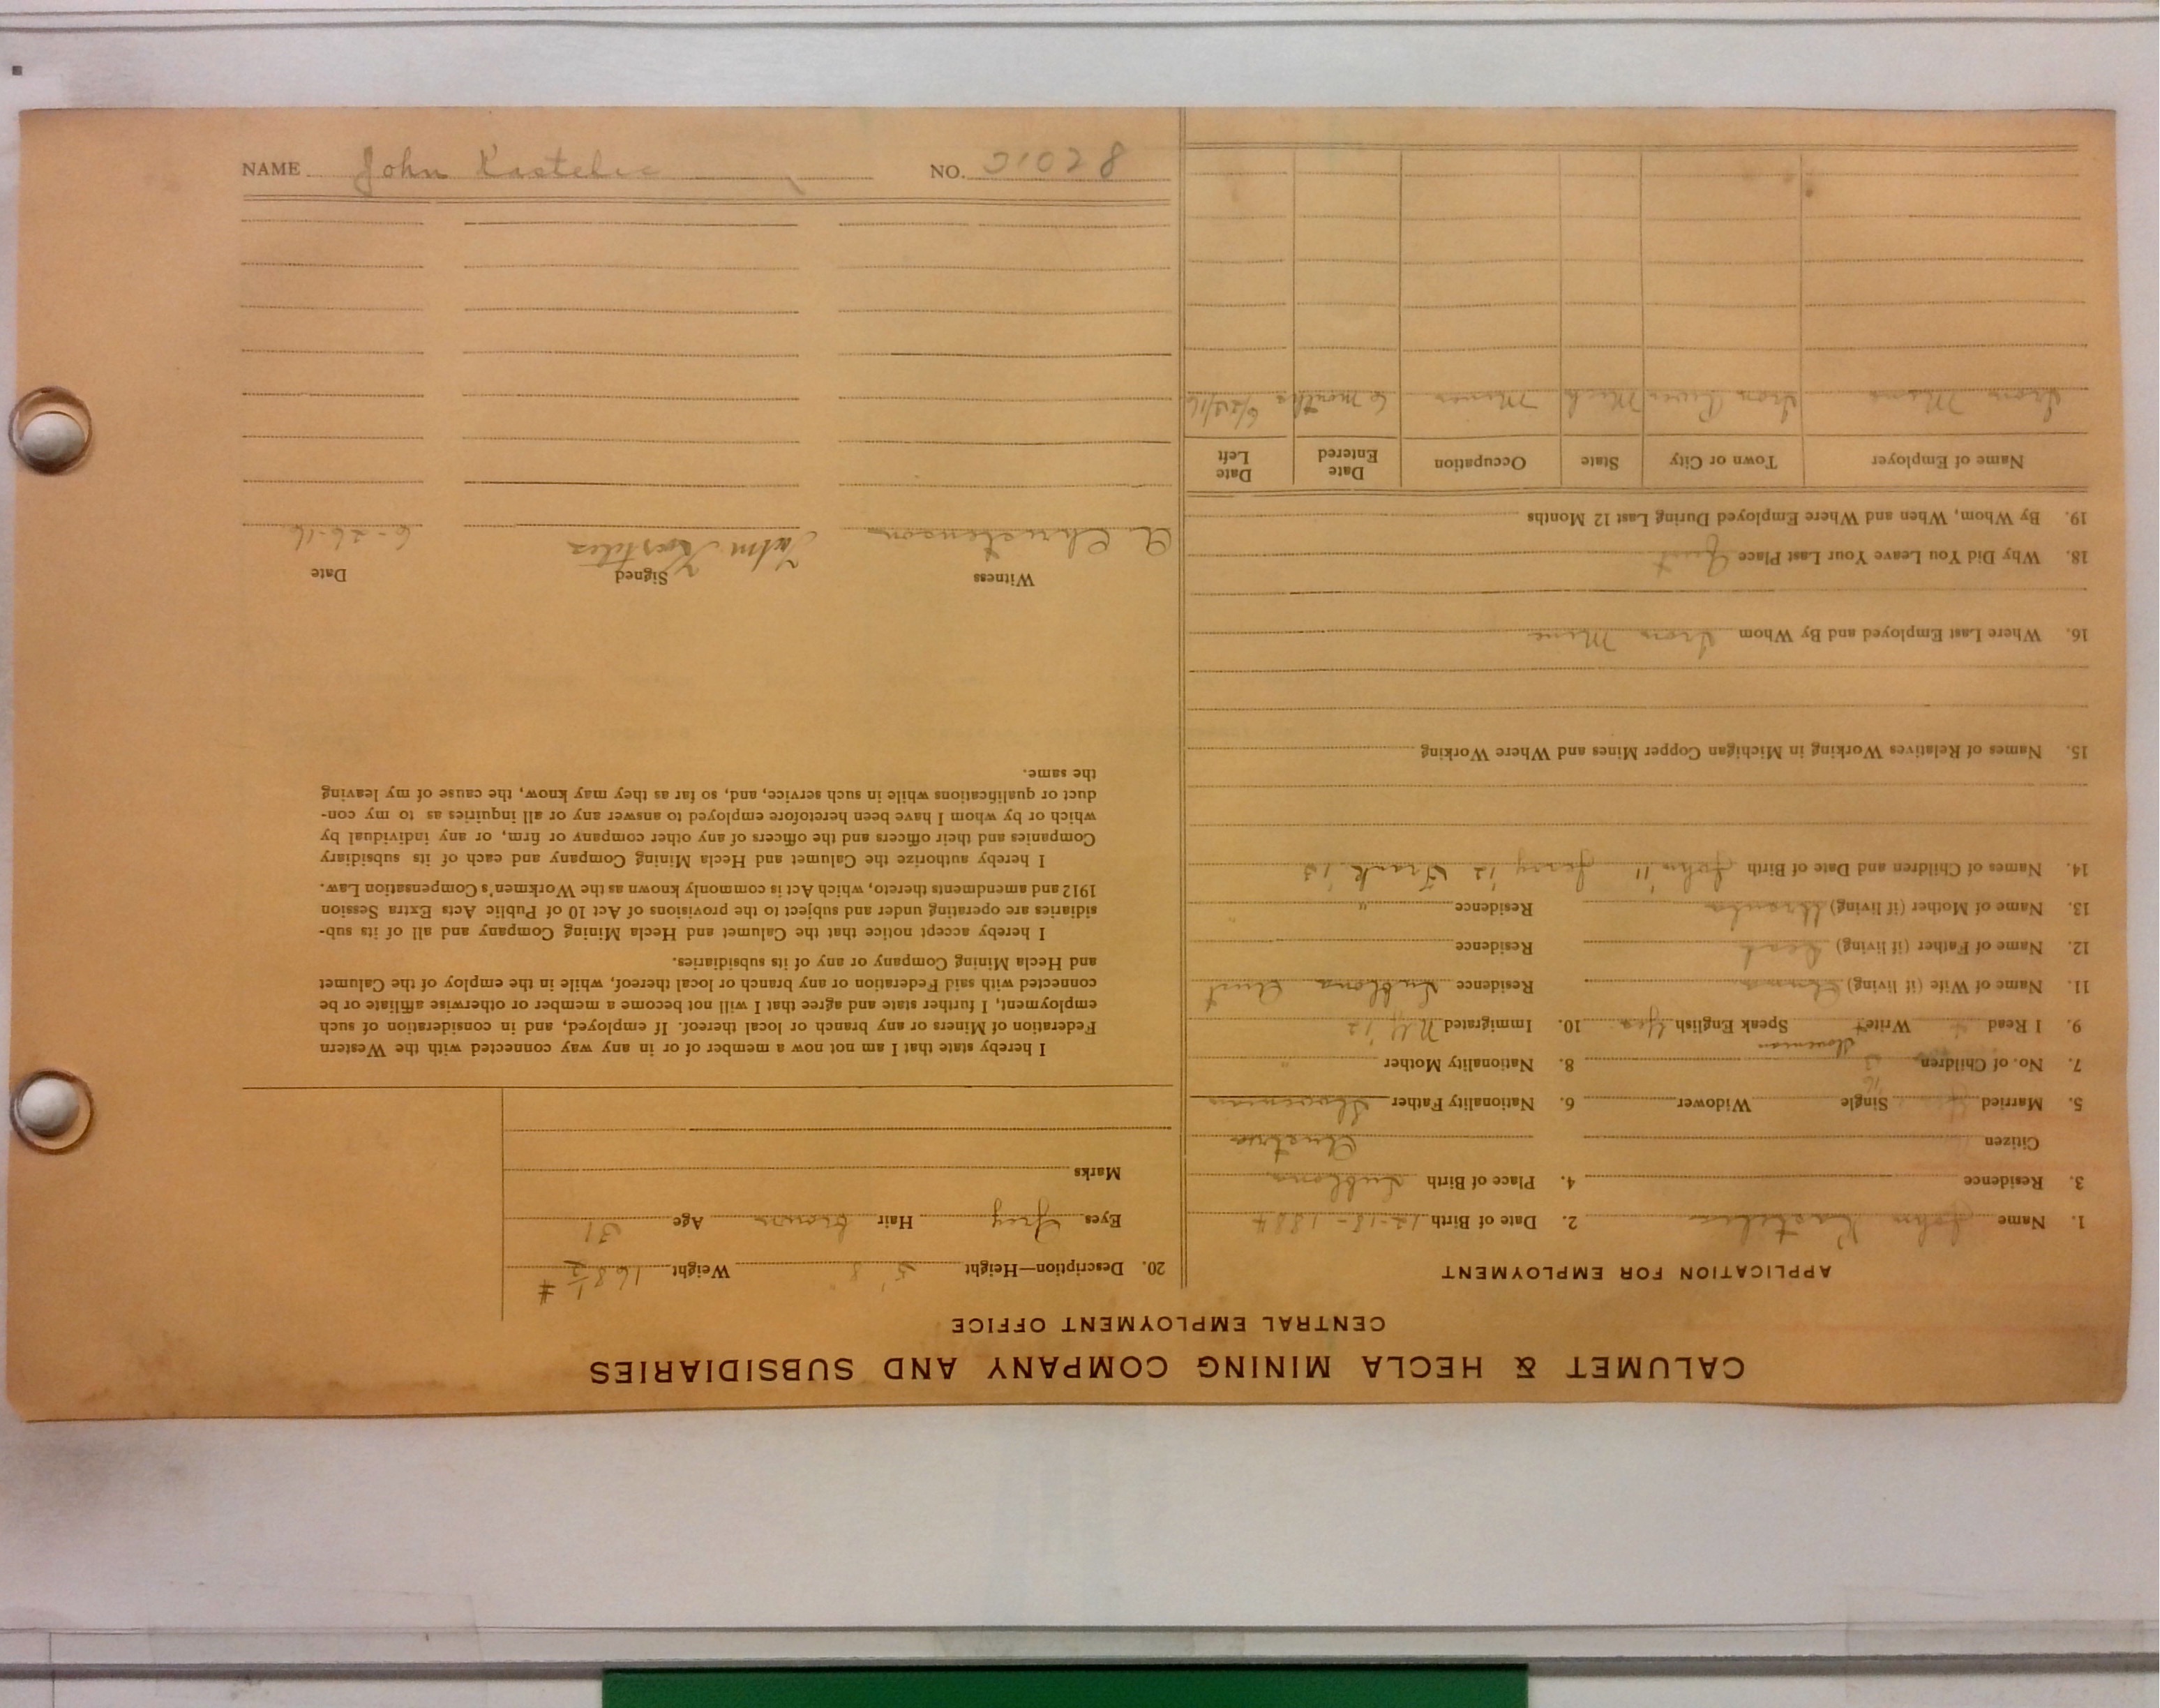 NAME John Kastelic NO. 31028
CALUMET & HECLA MINING COMPANY AND SUBSIDIARIES
CENTRAL EMPLOYMENT OFFICE
APPLICATION FOR EMPLOYMENT
1. Name John Kastelic 2. Date of Birth 12-18-1884
3. Residence 4. Place of Birth
Citizen Austria
5. Married Single Widower 6. Nationality Father Slovenian
7. No. of Children 3 8. Nationality Mother "
Slovenian
9. I Read Write Speak English Yes 10. Immigrated N.Y. '12
11. Name of Wife (if living) Residence Aust
12. Name of Father (if living) Dead Residence
13. Name of Mother (if living) Residence "
14. Names of Children and Date of Birth John '11 Jerry '12 Frank '13
15. Names of Relatives Working in Michigan Copper Mines and Where Working
16. Where Last Employed and By Whom Iron Mine
18. Why Did You Leave Your Last Place Quit
19. By Whom, When and Where Employed During Last 12 Months
Name of Employer Town or City State Occupation Date Entered Date Left
Iron Mine Iron River Mich Miner 6 months 6/24/16
20. Description—Height 5' 8" Weight 168 1/2 #
Eyes Grey Hair brown Age 31
Marks
I hereby state that I am not now a member of or in any way connected with the Western
Federation of Miners or any branch or local thereof. If employed, and in consideration of such
employment, I further state and agree that I will not become a member or otherwise affiliate or be
connected with said Federation or any branch or local thereof, while in the employ of the Calumet
and Hecla Mining Company or any of its subsidiaries.
I hereby accept notice that the Calumet and Hecla Mining Company and all of its sub-
sidiaries are operating under and subject to the provisions of Act 10 of Public Acts Extra Session
1912 and amendments thereto, which Act is commonly known as the Workmen's Compensation Law.
I hereby authorize the Calumet and Hecla Mining Company and each of its subsidiary
Companies and their officers and the officers of any other company or firm, or any individual by
which or by whom I have been heretofore employed to answer any or all inquiries as to my con-
duct or qualifications while in such service, and, so far as they may know, the cause of my leaving
the same.
Witness Signed Date
A Christenson John Kastelic 6-26-16